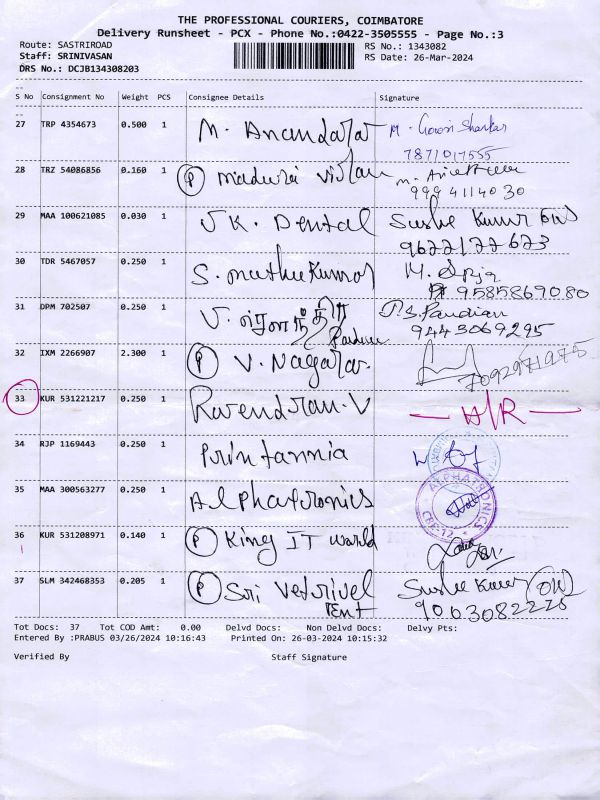 THE PROFESSIONAL COURIERS, COIMBATORE
Delivery Runsheet - PCX - Phone No.:0422-3505555 - Page No.:3
Route: SASTRIROAD RS No.: 1343082
Staff: SRINIVASAN RS Date: 26-Mar-2024
DRS No.: DCJB134308203
S No Consignment No Weight PCS Consignee Details Signature
27 TRP 4354673 0.500 1 M. Anandaraj M. Gowri Shankar
7871017555
28 TRZ 54086856 0.160 1 P madurai vision
9994114030
29 MAA 100621085 0.030 1 J K. Dental Sushe Kumar
9677177673
30 TDR 5467057 0.250 1 S. muthukumar M.
9585869080
31 DPM 702507 0.250 1 V. P.S. Pandian
9443069295
32 IXM 2266907 2.300 1 P V. Nagaraj
7092971975
33 KUR 531221217 0.250 1 Ravendran. V
34 RJP 1169443 0.250 1 Printannia
35 MAA 300563277 0.250 1 Alphatronics ALPHATRONICS
CBE-12
36 KUR 531208971 0.140 1 P King IT world
37 SLM 342468353 0.205 1 P Sri Vetrivel Sushe Kumar
Ent 9003082228
Tot Docs: 37 Tot COD Amt: 0.00 Delvd Docs: Non Delvd Docs: Delvy Pts:
Entered By :PRABUS 03/26/2024 10:16:43 Printed On: 26-03-2024 10:15:32
Verified By Staff Signature